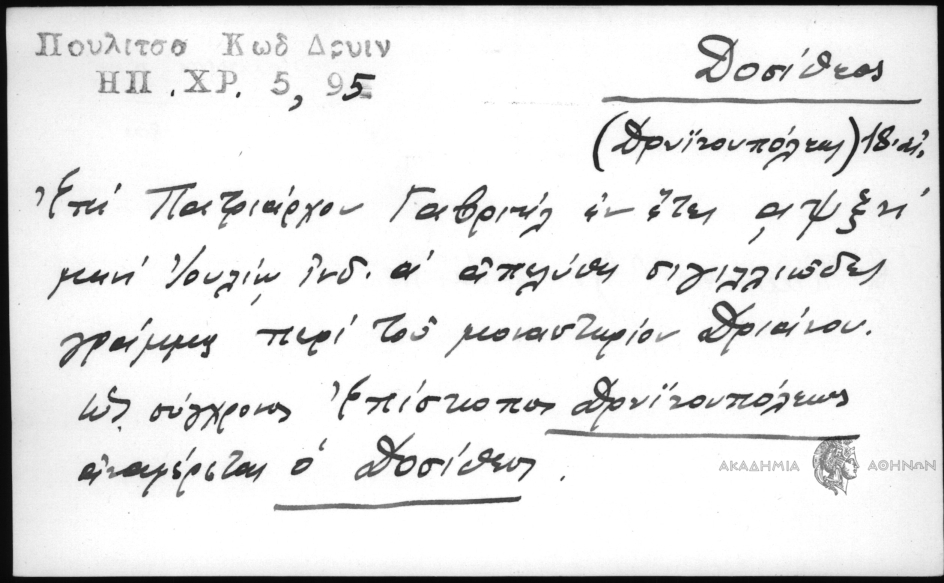 Πουλιτσα Κωδ Δρυιν
ΗΠ .ΧΡ. 5, 95
Δοσίθεος
(Δρυϊνουπόλεως) 18 αἰ.
Ἐπί Πατριάρχου Γαβριήλ ἐν ἔτει ͵αψξη΄
μηνί Ἰουλίῳ ἰνδ. α΄ ἀπελύθη σιγιλλιῶδες
γράμμα περί τοῦ μοναστηρίου Δριάνου.
Ὡς σύγχρονος Ἐπίσκοπος Δρυϊνουπόλεως
ἀναφέρεται ὁ Δοσίθεος.
ΑΚΑΔΗΜΙΑ ΑΘΗΝΩΝ